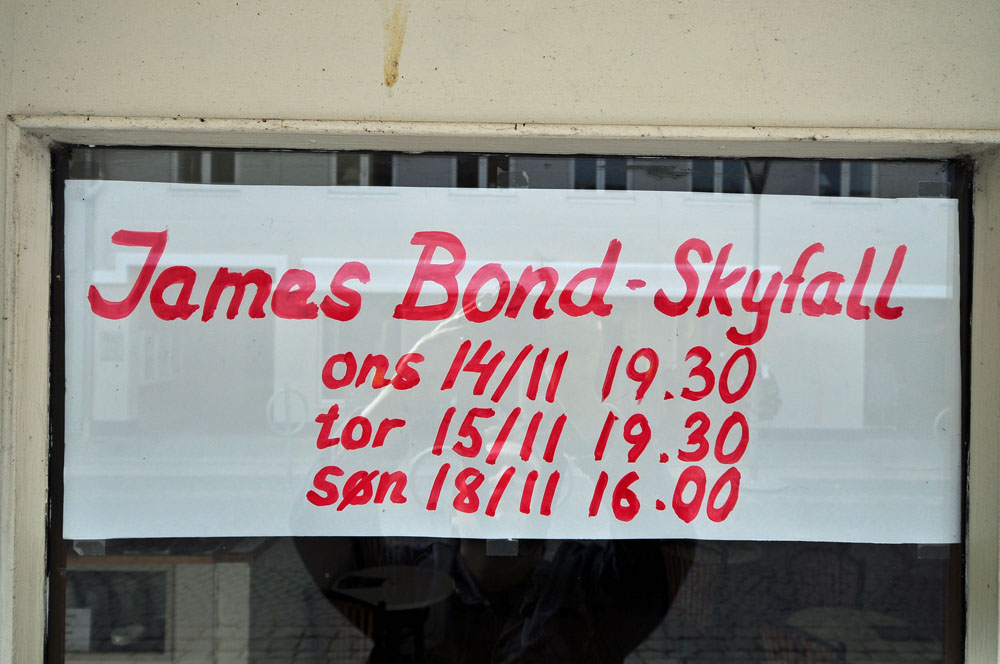 James Bond - Skyfall
ons 14/11 19.30
tor 15/11 19.30
søn 18/11 16.00